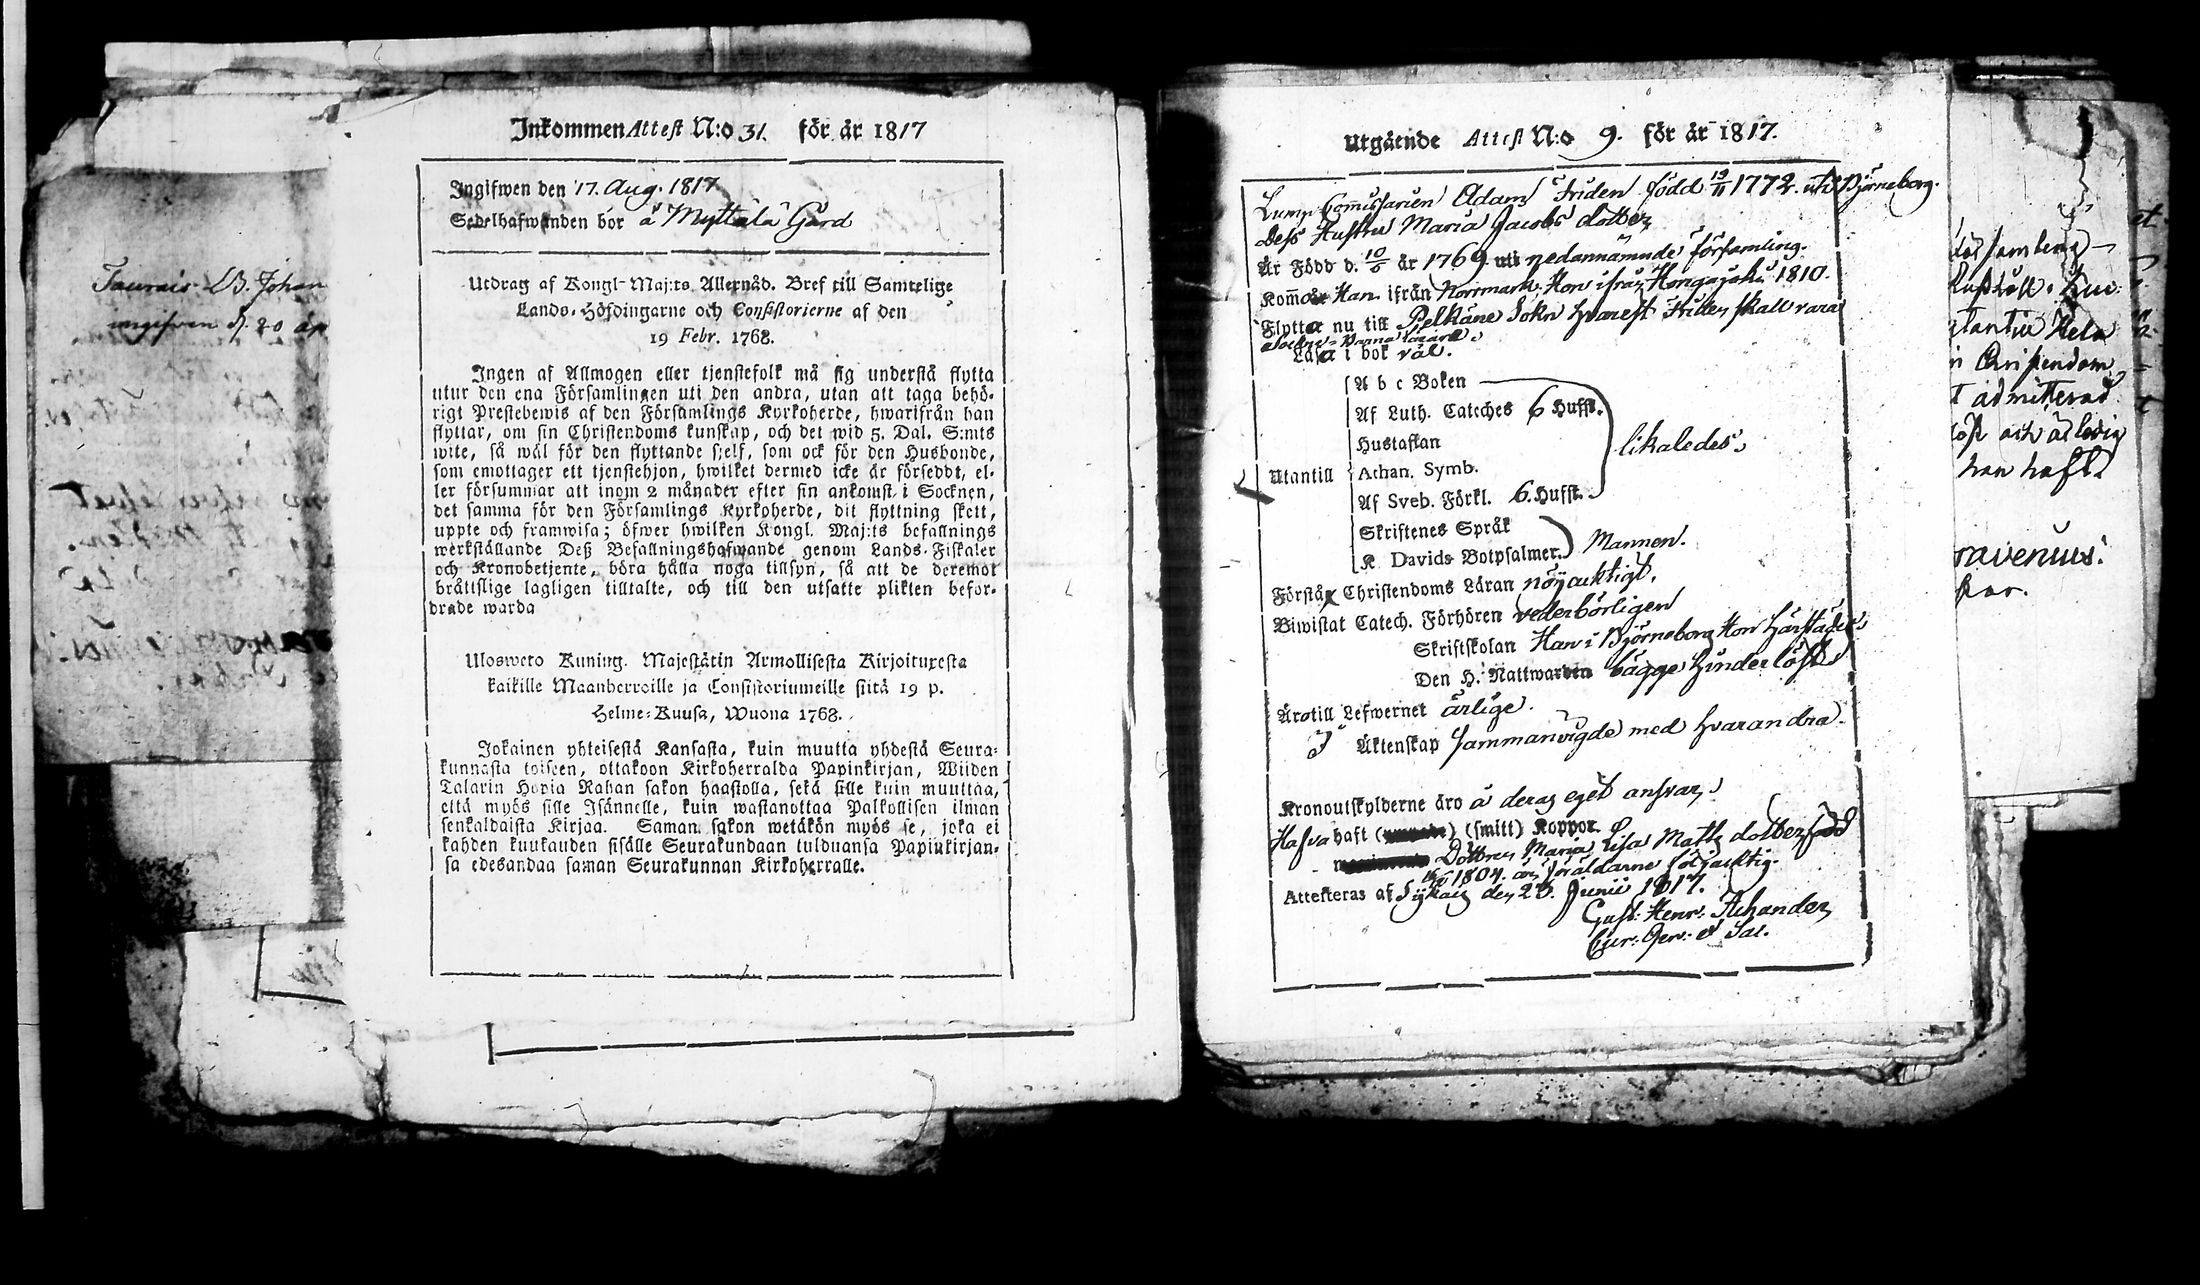 Inkommen Attest N:o 31. för år 1817
Ingifwen den 17. Aug. 1817
Sedelhafwanden bor å Myttälä Gård
Utdrag af Kongl-Maj:ts Allernåd. Bref till Samtelige
Lands-Höfdingarne och Consistorierne af den
19 Febr. 1768.
Ingen af Allmogen eller tjenstefolk må sig understå flytta
utur den ena Församlingen uti den andra, utan att taga behö-
rigt Prestebewis af den Församlings Kyrkoherde, hwarifrån han
flyttar, om sin Christendoms kunskap, och det wid 5. Dal. S:mts
wite, så wäl för den flyttande sjelf, som ock för den Husbonde,
som emottager ett tjenstehjon, hwilket dermed icke är förseddt, el-
ler försummar att inom 2 månader efter sin ankomst i Socknen,
det samma för den Församlings Kyrkoherde, dit flyttning skett,
uppte och framwisa; öfwer hwilken Kongl. Maj:ts befallnings
werkställande Deß Befallningshafwande genom Lands-Fiskaler
och Kronobetjente, böra hålla noga tillsyn, så att de deremot
bråttslige lagligen tilltalte, och till den utsatte plikten befor-
drade warda
Ulosweto Kuning. Majestätin Armollisesta Kirjoituxesta
kaikille Maanherroille ja Consistoriumeille siitä 19 p.
Helme-Kuusa, Wuona 1768.
Jokainen yhteisestä Kansasta, kuin muutta yhdestä Seura-
kunnasta toiseen, ottakoon Kirkoherralda Papinkirjan, Wiiden
Talarin Hopia Rahan sakon haastolla, sekä sille kuin muuttaa,
että myös sille Isännelle, kuin wastanottaa Palkollisen ilman
senkaldaista Kirjaa. Saman sakon wetäkön myös se, joka ei
kahden kuukauden sisälle Seurakundaan tulduansa Papinkirjan-
sa edesandaa saman Seurakunnan Kirkoherralle.
Utgående Attest N:o 9. för år 1817.
Lump Commissarien Adam Friden född 19/11 1772. uti Björneborg.
Dess Hustru Maria Jacobs dotter
Är Född d. 10/6 år 1769 uti nedannämnde församling.
Kommo Han ifrån Norrmark Hon ifrån Hongajoki 1810.
Flyttar nu till Pelkäne Sokn hvarest Friden skall vara
Läsa i bok väl.
A b c Boken
Af Luth. Cateches 6 Hufst.
Hustaflan
Utantill Athan. Symb. likaledes
Af Sveb. Förkl. 6. Hufst.
Skriftenes Språk
K Davids Botpsalmer. Mannen.
Förstår Christendoms Läran nöyacktigt.
Biwistat Catech. Förhören vederbörligen
Skriftskolan Han i Björneborg Hon härstädes
Den H. Nattwarden bägge hinderlöst
Äro till Lefwernet ärlige.
I Äktenskap sammanvigde med hvarandra.
Kronoutskylderne äro å deras eget ansvar
Hafva haft (smitt) Koppor.
Dottren Maria Lisa Matts dotter född
1804. är föräldarne följacktig.
Attesteras af Sykais den 23. Junii 1817.
Gust: Henr: Achander
Cur: Ger: et Sac.
Johan
ingifven d. 20
Församling
admitterad
han haft